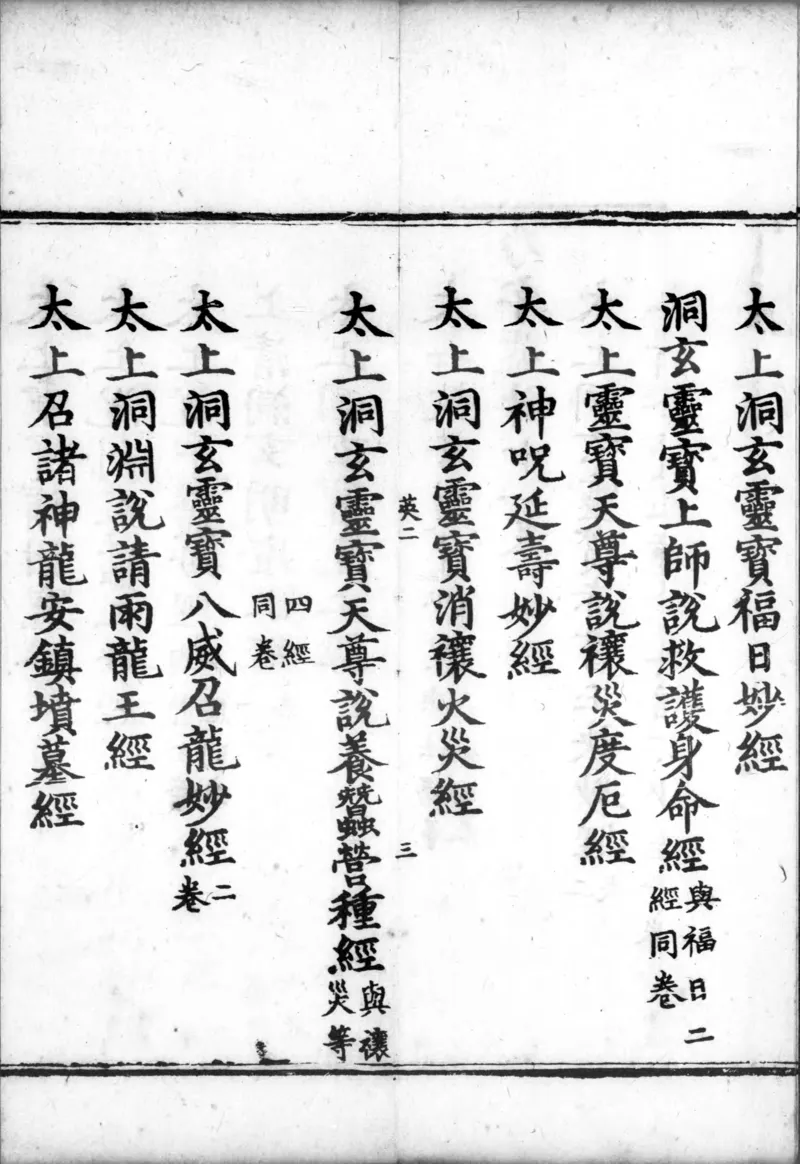 太上洞玄靈寶福日妙經
洞玄靈寶上師說救護身命經與福日二經同卷
太上靈寶天尊說禳災度厄經
太上神呪延壽妙經
太上洞玄靈寶消禳火災經
英二 三
太上洞玄靈寶天尊說養蠶營種經與禳災等
四經同卷
太上洞玄靈寶八威召龍妙經二卷
太上洞淵說請雨龍王經
太上召諸神龍安鎮墳墓經